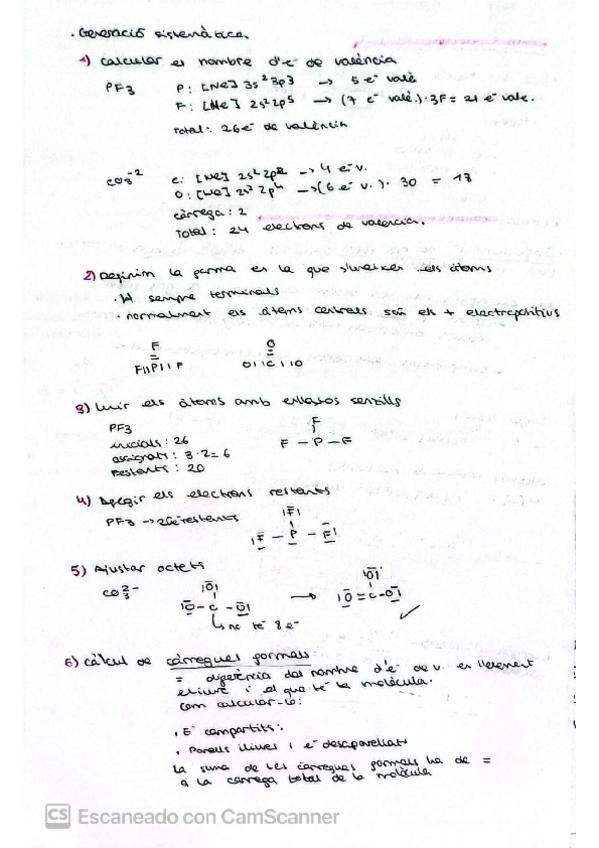 . Generació sistemàtica.
1) Calcular es nombre d'e⁻ de valència
PF3 P: [Ne] 3s² 3p3 → 5 e⁻ valè
F: [He] 2s² 2p⁵ → (7 e⁻ valè.) · 3F = 21 e⁻ vale.
Total: 26e⁻ de valència
CO3⁻² C: [He] 2s² 2p² → 4 e⁻ v.
O: [He] 2s² 2p⁴ → (6 e⁻ v.) · 3O = 18
càrrega: 2
Total: 24 electrons de valencia.
2) Definim la forma en la que s'uneixen els àtoms
· H sempre terminals
· normalment els àtoms centrals són els + electropositius
F O
F | | P | | F O | | C | | O
3) Unir els àtoms amb enllaços senzills
PF3 F
inicials: 26 F – P – F
assignats: 3·2=6
Restants: 20
4) Afegir els electrons restants
PF3 → 20e⁻ restants |F̄|
|F – P – F|
5) Ajustar octets
CO3²⁻ |Ō| |Ō|
|O – C – O| → |O = C – O| ✓
↳ no té 8 e⁻
6) Càlcul de càrregues formals
= diferència del nombre d'e⁻ de v. en l'element
lliure i el que té la molècula.
Com calcular-lo:
· E⁻ compartits:
· Parells lliures i e⁻ desaparellats
La suma de les càrregues formals ha de =
a la càrrega total de la molècula
CS Escaneado con CamScanner